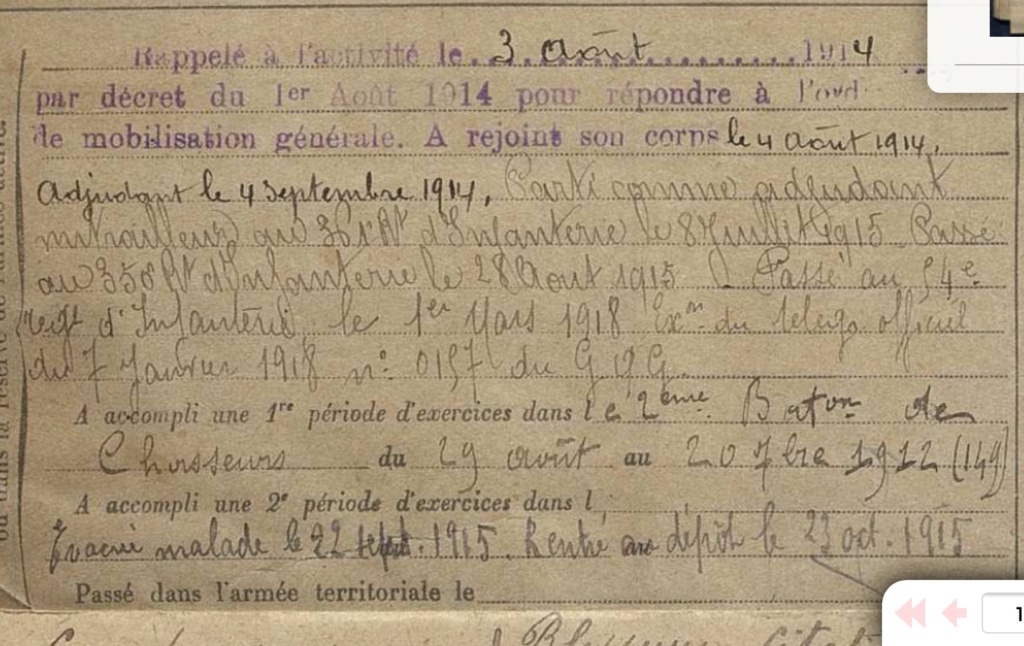 Rappelé à l'activité le 3 août 1914
par décret du 1er Août 1914 pour répondre à l'ord
de mobilisation générale. A rejoint son corps le 4 août 1914,
Adjudant le 4 septembre 1914, Parti comme adjudant
mitrailleur au d'Infanterie le 8 Juillet 1915 Passé
au 356 Rt d'Infanterie le 28 Aout 1915 Passé au 54e
regt d'Infanterie le 1er Mars 1918 Exon du telego officiel
du 7 Janvier 1918 no 0157 du G.Q.G.
A accompli une 1re période d'exercices dans le 2ème Baton de
Chasseurs du 29 août au 20 7bre 1912 (149)
A accompli une 2e période d'exercices dans l
Evacué malade le 22 sept. 1915. Rentré au dépôt le 23 oct. 1915
Passé dans l'armée territoriale le
1